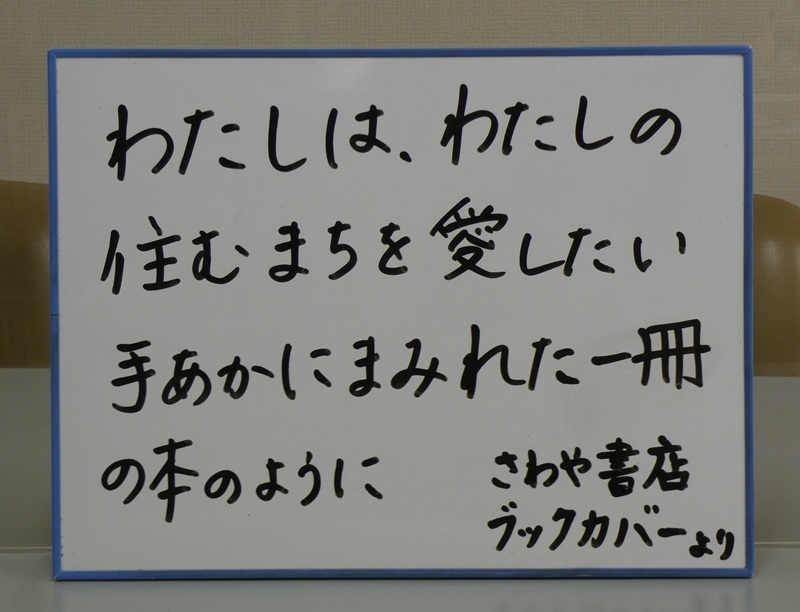 わたしは、わたしの
住むまちを愛したい
手あかにまみれた一冊
の本のように
さわや書店
ブックカバーより